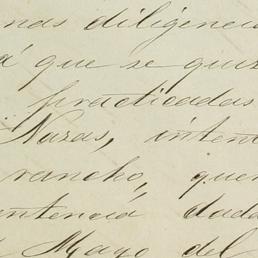 nas diligencia
á que se quiz
practicadas
Nazas, intent
rancho, quer
entencia dada
Mayo del